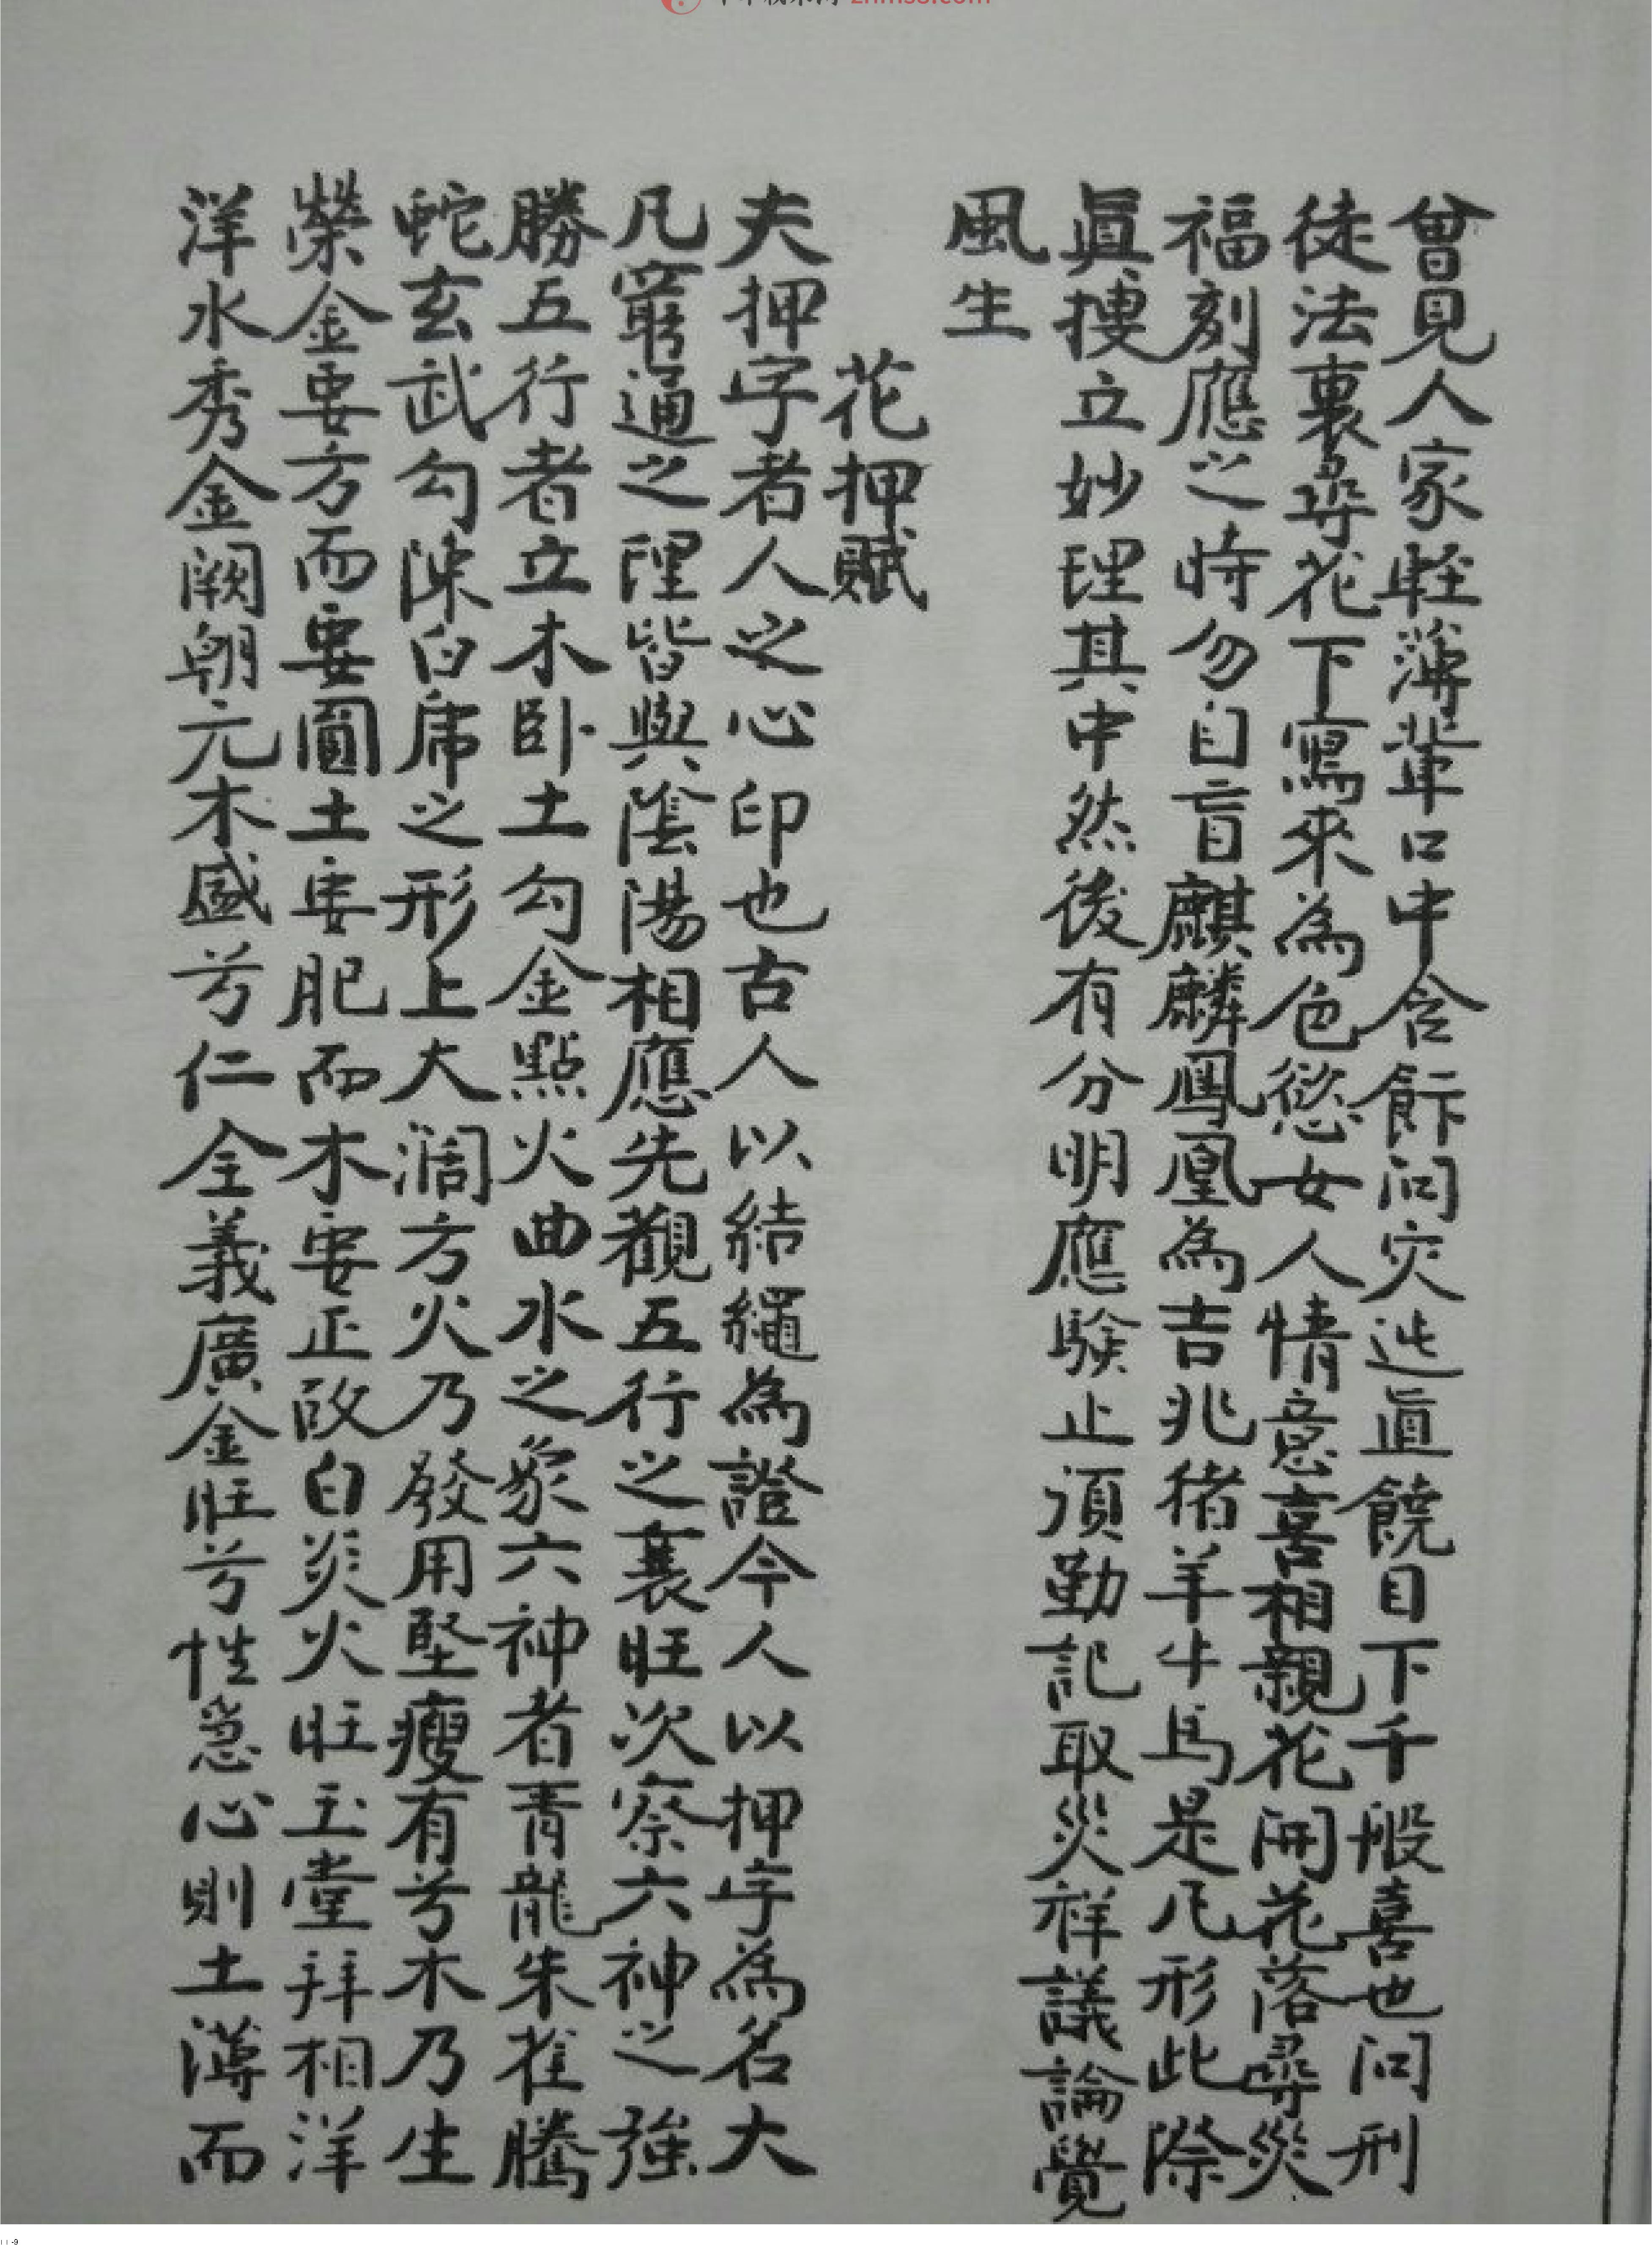 曾見人家輕薄輩口中含飪問灾迍直饒目下千般喜也問刑
徒法裏尋花下寫來為色慾女人情意喜相親花開花落尋災
福刻應之時勿自盲麒麟鳳凰為吉兆猪羊牛馬是凡形此際
眞搜立妙理其中然後有分明應驗止須勤記取災祥議論覺
風生
花押賦
夫押字者人之心印也古人以結繩為證今人以押字為名大
凡窮通之理皆與陰陽相應先觀五行之衰旺次察六神之強
勝五行者立木卧土勾金點火曲水之象六神者青龍朱雀騰
蛇玄武勾陳白虎之形上大濶方火乃發用堅瘦有兮木乃生
榮金要方而要圓土要肥而木要正改白炎火旺玉堂拜相洋
洋水秀金闕朝元木盛兮仁全義廣金旺兮性急心則土薄而